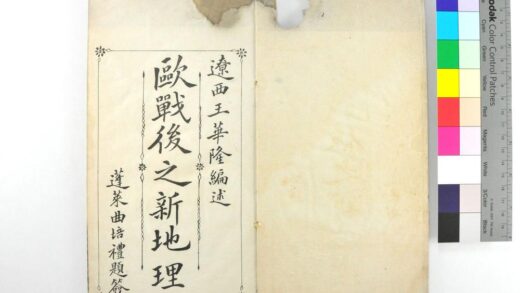 遼西王華隆編述
歐戰後之新地理
蓬萊曲培禮題簽
Kodak
Color Control Patches
Blue
Cyan
Green
Yellow
Red
Magenta
White
3/Color
Black